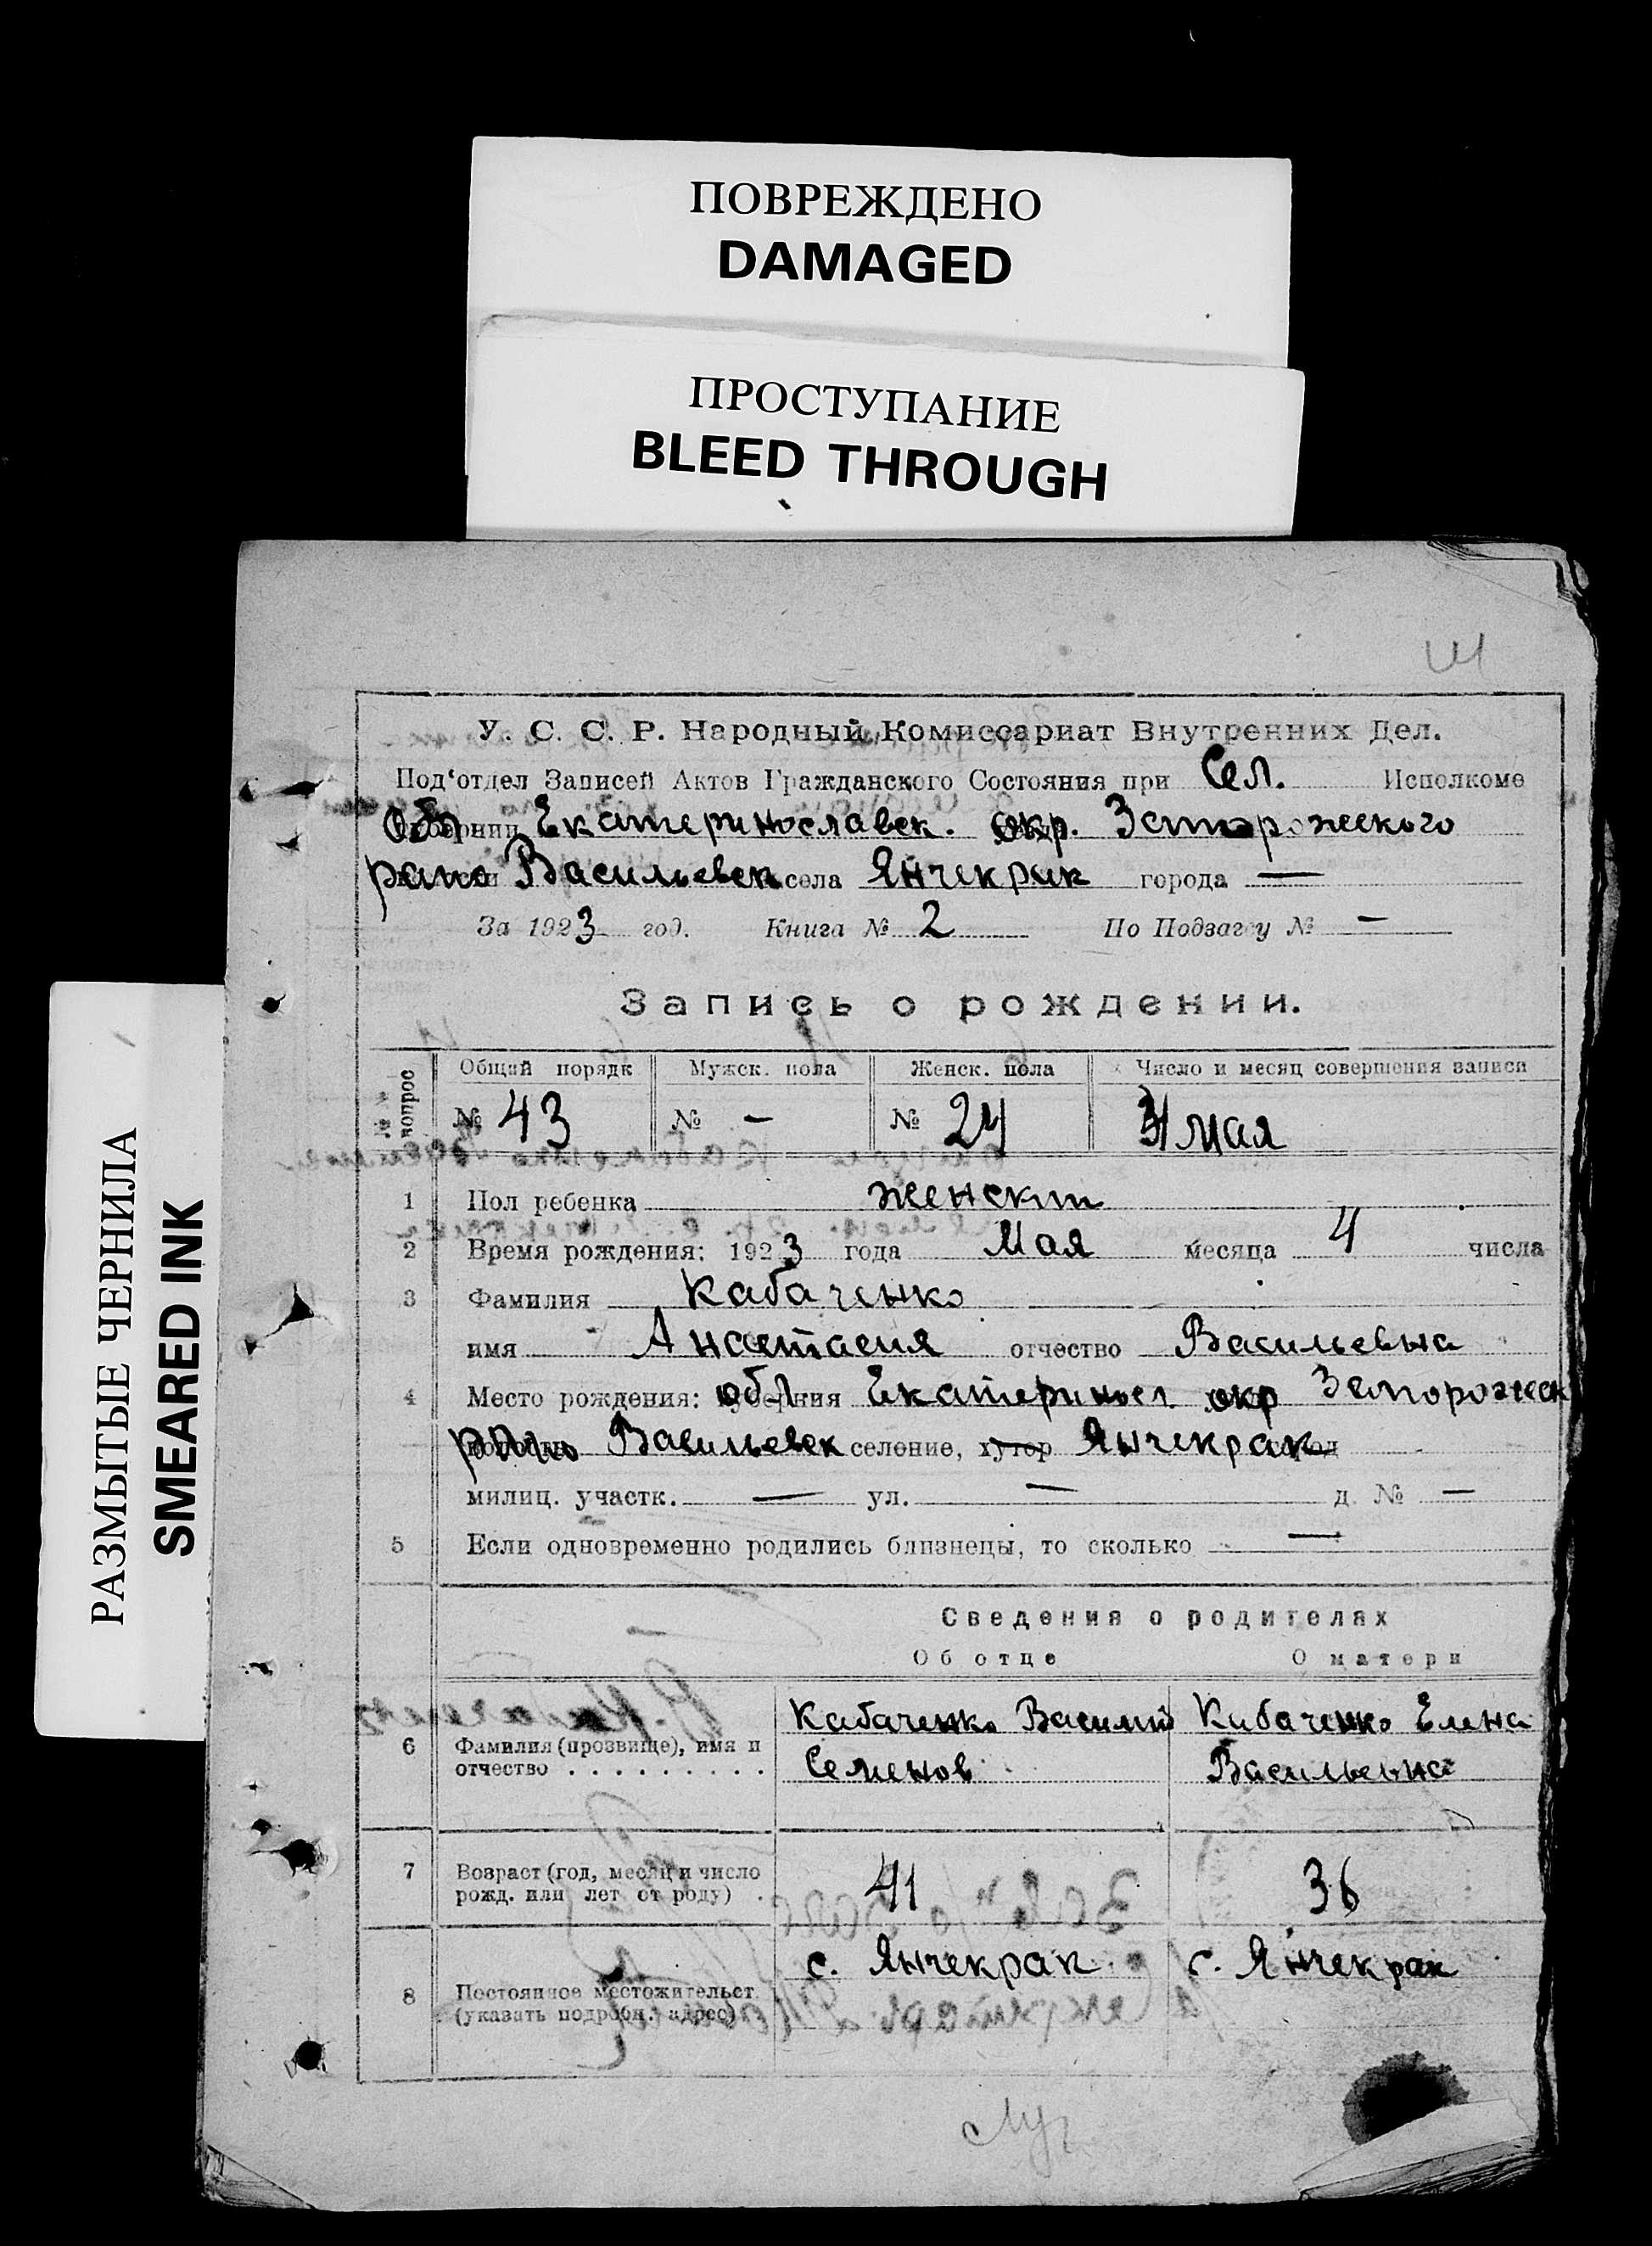 ПОВРЕЖДЕНО
DAMAGED
ПРОСТУПАНИЕ
BLEED THROUGH
РАЗМЫТЫЕ ЧЕРНИЛА
SMEARED INK
У. С. С. Р. Народный Комиссариат Внутренних Дел.
Под‘отдел Записей Актов Гражданского Состояния при Сел. Исполкоме
Обл Екатеринославск. окр. Запорожского
рано Васильевск села Янчекрак города —
За 1923 год. Книга № 2 По Подзагсу № —
Запись о рождении.
№№ вопрос
Общий порядк Мужск. пола Женск. пола Число и месяц совершения записи
№ 43 № — № 24 31 мая
1 Пол ребенка женский
2 Время рождения: 1923 года Мая месяца 4 числа
3 Фамилия Кабаченко
имя Анастасия отчество Васильевна
4 Место рождения: обл Екатеринос окр Запорожск
Васильевск селение, хутор Янчекрак
милиц. участк. — ул. — д. № —
5 Если одновременно родились близнецы, то сколько —
Сведения о родителях
Об отце О матери
6 Фамилия (прозвище), имя и отчество . . . . . . . . .
Кабаченко Василий
Семенов
Кабаченко Елена
Васильевна
7 Возраст (год, месяц и число рожд. или лет от роду) .
41 36
8 Постоянное местожительст. (указать подробн. адрес)
с. Янчекрак. с. Янчекрак